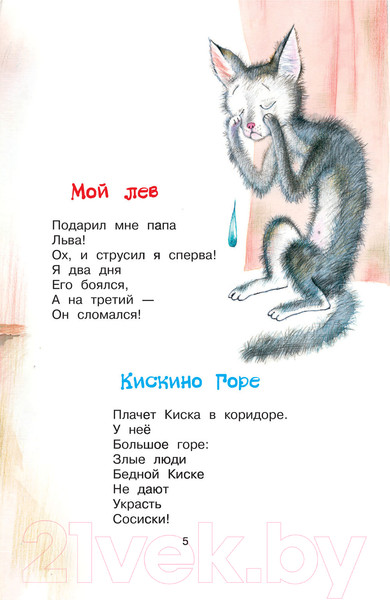 Мой лев
Подарил мне папа
Льва!
Ох, и струсил я сперва!
Я два дня
Его боялся,
А на третий —
Он сломался!
Кискино горе
Плачет Киска в коридоре.
У неё
Большое горе:
Злые люди
Бедной Киске
Не дают
Украсть
Сосиски!
5
21vek.by